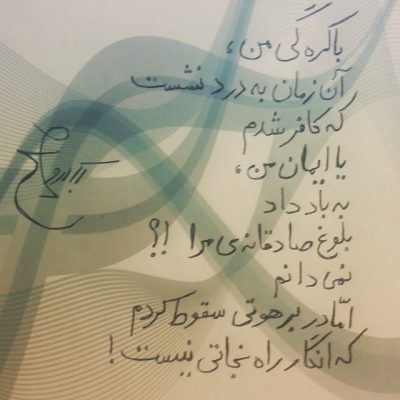 باکره گی من،
آن زمان به درد نشست
که کافر شدم
یا ایمان من،
به باد داد
بلوغ صادقانه ی مرا !؟
نمی دانم
امّا در برهوتی سقوط کردم
که انگار راه نجاتی نیست!